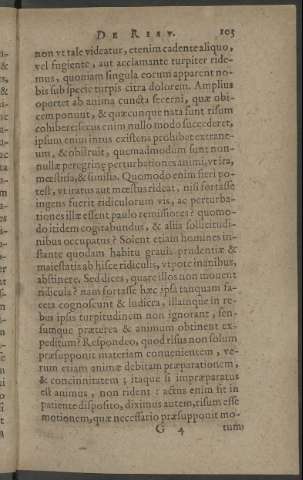 DE RISV. 105
non vt tale videatur, etenim cadente aliquo,
vel fugiente, aut acclamante turpiter ride-
mus, quoniam singula eorum apparent no-
bis sub specie turpis citra dolorem. Amplius
oportet ab anima cuncta secerni, quæ obi-
cem ponunt, & quæcunque nata sunt risum
cohibere: secus enim nullo modo succederet,
ipsum enim intus existens prohibet extrane-
um, & obstruit, quemadmodum sunt non-
nullæ peregrinæ perturbationes animi, vt ira,
mœstitia, & similia. Quomodo enim fieri po-
test, vt iratus aut mœstus rideat, nisi fortasse
ingens fuerit ridiculorum vis, ac perturba-
tiones illæ essent paulo remissiores? quomo-
do itidem cogitabundus, & aliis sollicitudi-
nibus occupatus? Solent etiam homines in-
stante quodam habitu grauis prudentiæ &
maiestatis ab hisce ridiculis, vtpote inanibus,
abstinere. Sed dices, quare illos non mouent
ridicula? nam fortasse hæc ipsa tanquam fa-
ceta cognoscunt & iudicia, illamque in re-
bus ipsis turpitudinem non ignorant, sen-
sumque præterea & animum obtinent ex-
peditum? Respondeo, quod risus non solum
præsupponit materiam conuenientem, ve-
rum etiam animæ debitam præparationem,
& concinnitatem; itaque si impræparatus
est animus, non rident: actus enim fit in
patiente disposito, diximus autem, risum esse
motionem, quæ necessario præsupponit mo-
G 4 tum